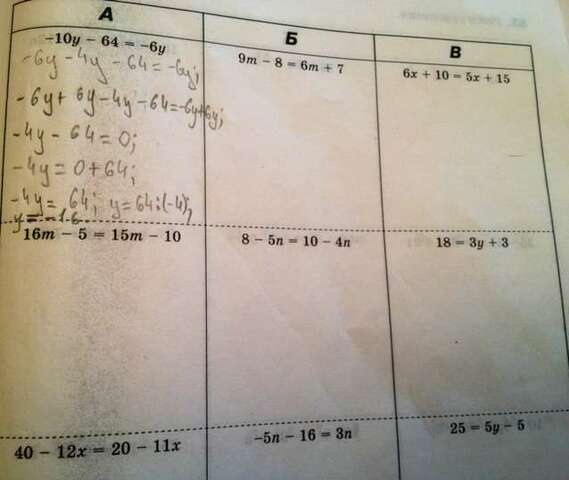 А
Б
В
-10y - 64 = -6y
-6y - 4y - 64 = -6y;
-6y + 6y - 4y - 64 = -6y + 6y;
-4y - 64 = 0;
-4y = 0 + 64;
-4y = 64; y = 64:(-4);
y = -16
9m - 8 = 6m + 7
6x + 10 = 5x + 15
16m - 5 = 15m - 10
8 - 5n = 10 - 4n
18 = 3y + 3
40 - 12x = 20 - 11x
-5n - 16 = 3n
25 = 5y - 5